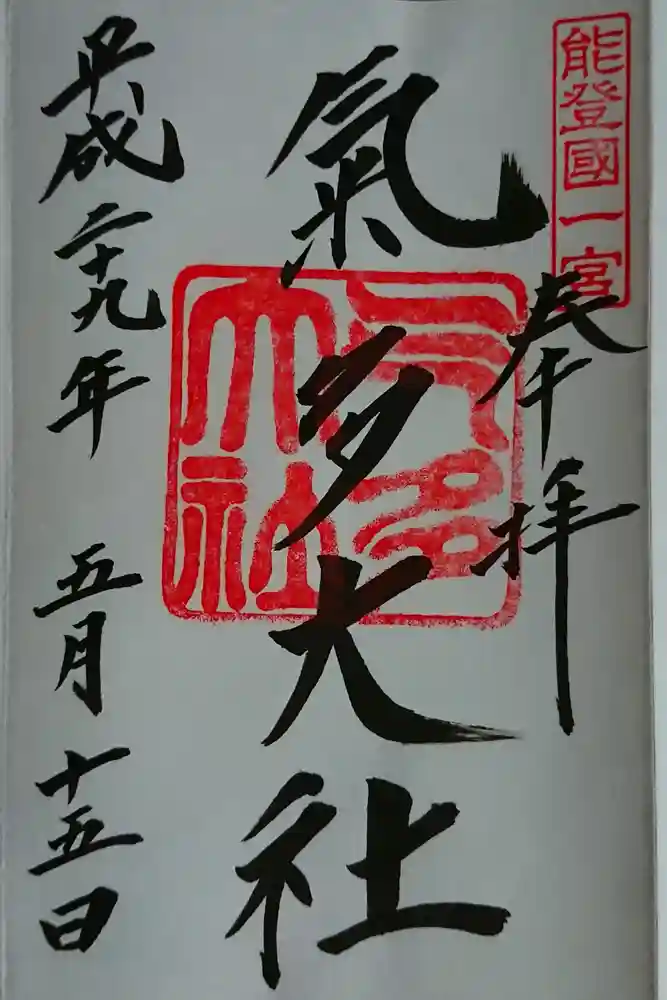 能登國一宮
奉拝
氣多大社
气多大社
平成二十九年 五月 十五日